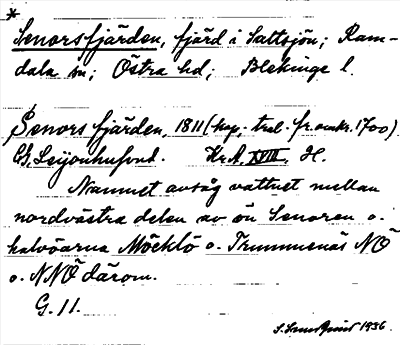 *
Senorsfjärden, fjärd i Saltsjön; Ram-
dala sn; Östra hd; Blekinge l.
Senors fjärden, 1811 (kop. trol. fr. omkr. 1700)
G. Leijonhufvud. Kr.A. XVIII. H.
Namnet avsåg vattnet mellan
nordvästra delen av ön Senoren o.
halvöarna Möcklö o. Trummenäs NÖ
o. NNÖ därom.
G. 11.
1936